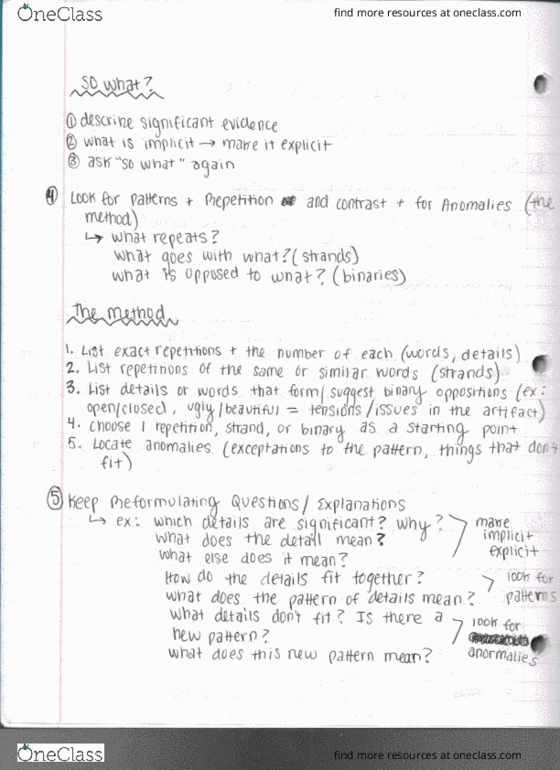 OneClass
find more resources at oneclass.com
SO What?
① describe significant evidence
② what is implicit → make it explicit
③ ask "so what" again
④ Look for patterns + Repetition and contrast + for Anomalies (the
method)
↳ what repeats?
what goes with what? (strands)
what is opposed to what? (binaries)
The method
1. List exact repetitions + the number of each (words, details)
2. List repetitions of the same or similar words (strands)
3. List details or words that form/suggest binary oppositions (ex:
open/closed, ugly/beautiful = tensions/issues in the artifact)
4. Choose 1 repetition, strand, or binary as a starting point
5. Locate anomalies (exceptations to the pattern, things that don't
fit)
⑤ Keep Reformulating Questions/Explanations
↳ ex: which details are significant? why?
What does the detail mean?
what else does it mean?
make
implicit
explicit
How do the details fit together?
what does the pattern of details mean?
look for
patterns
what details don't fit? Is there a
new pattern?
what does this new pattern mean?
look for
anormalies
OneClass
find more resources at oneclass.com